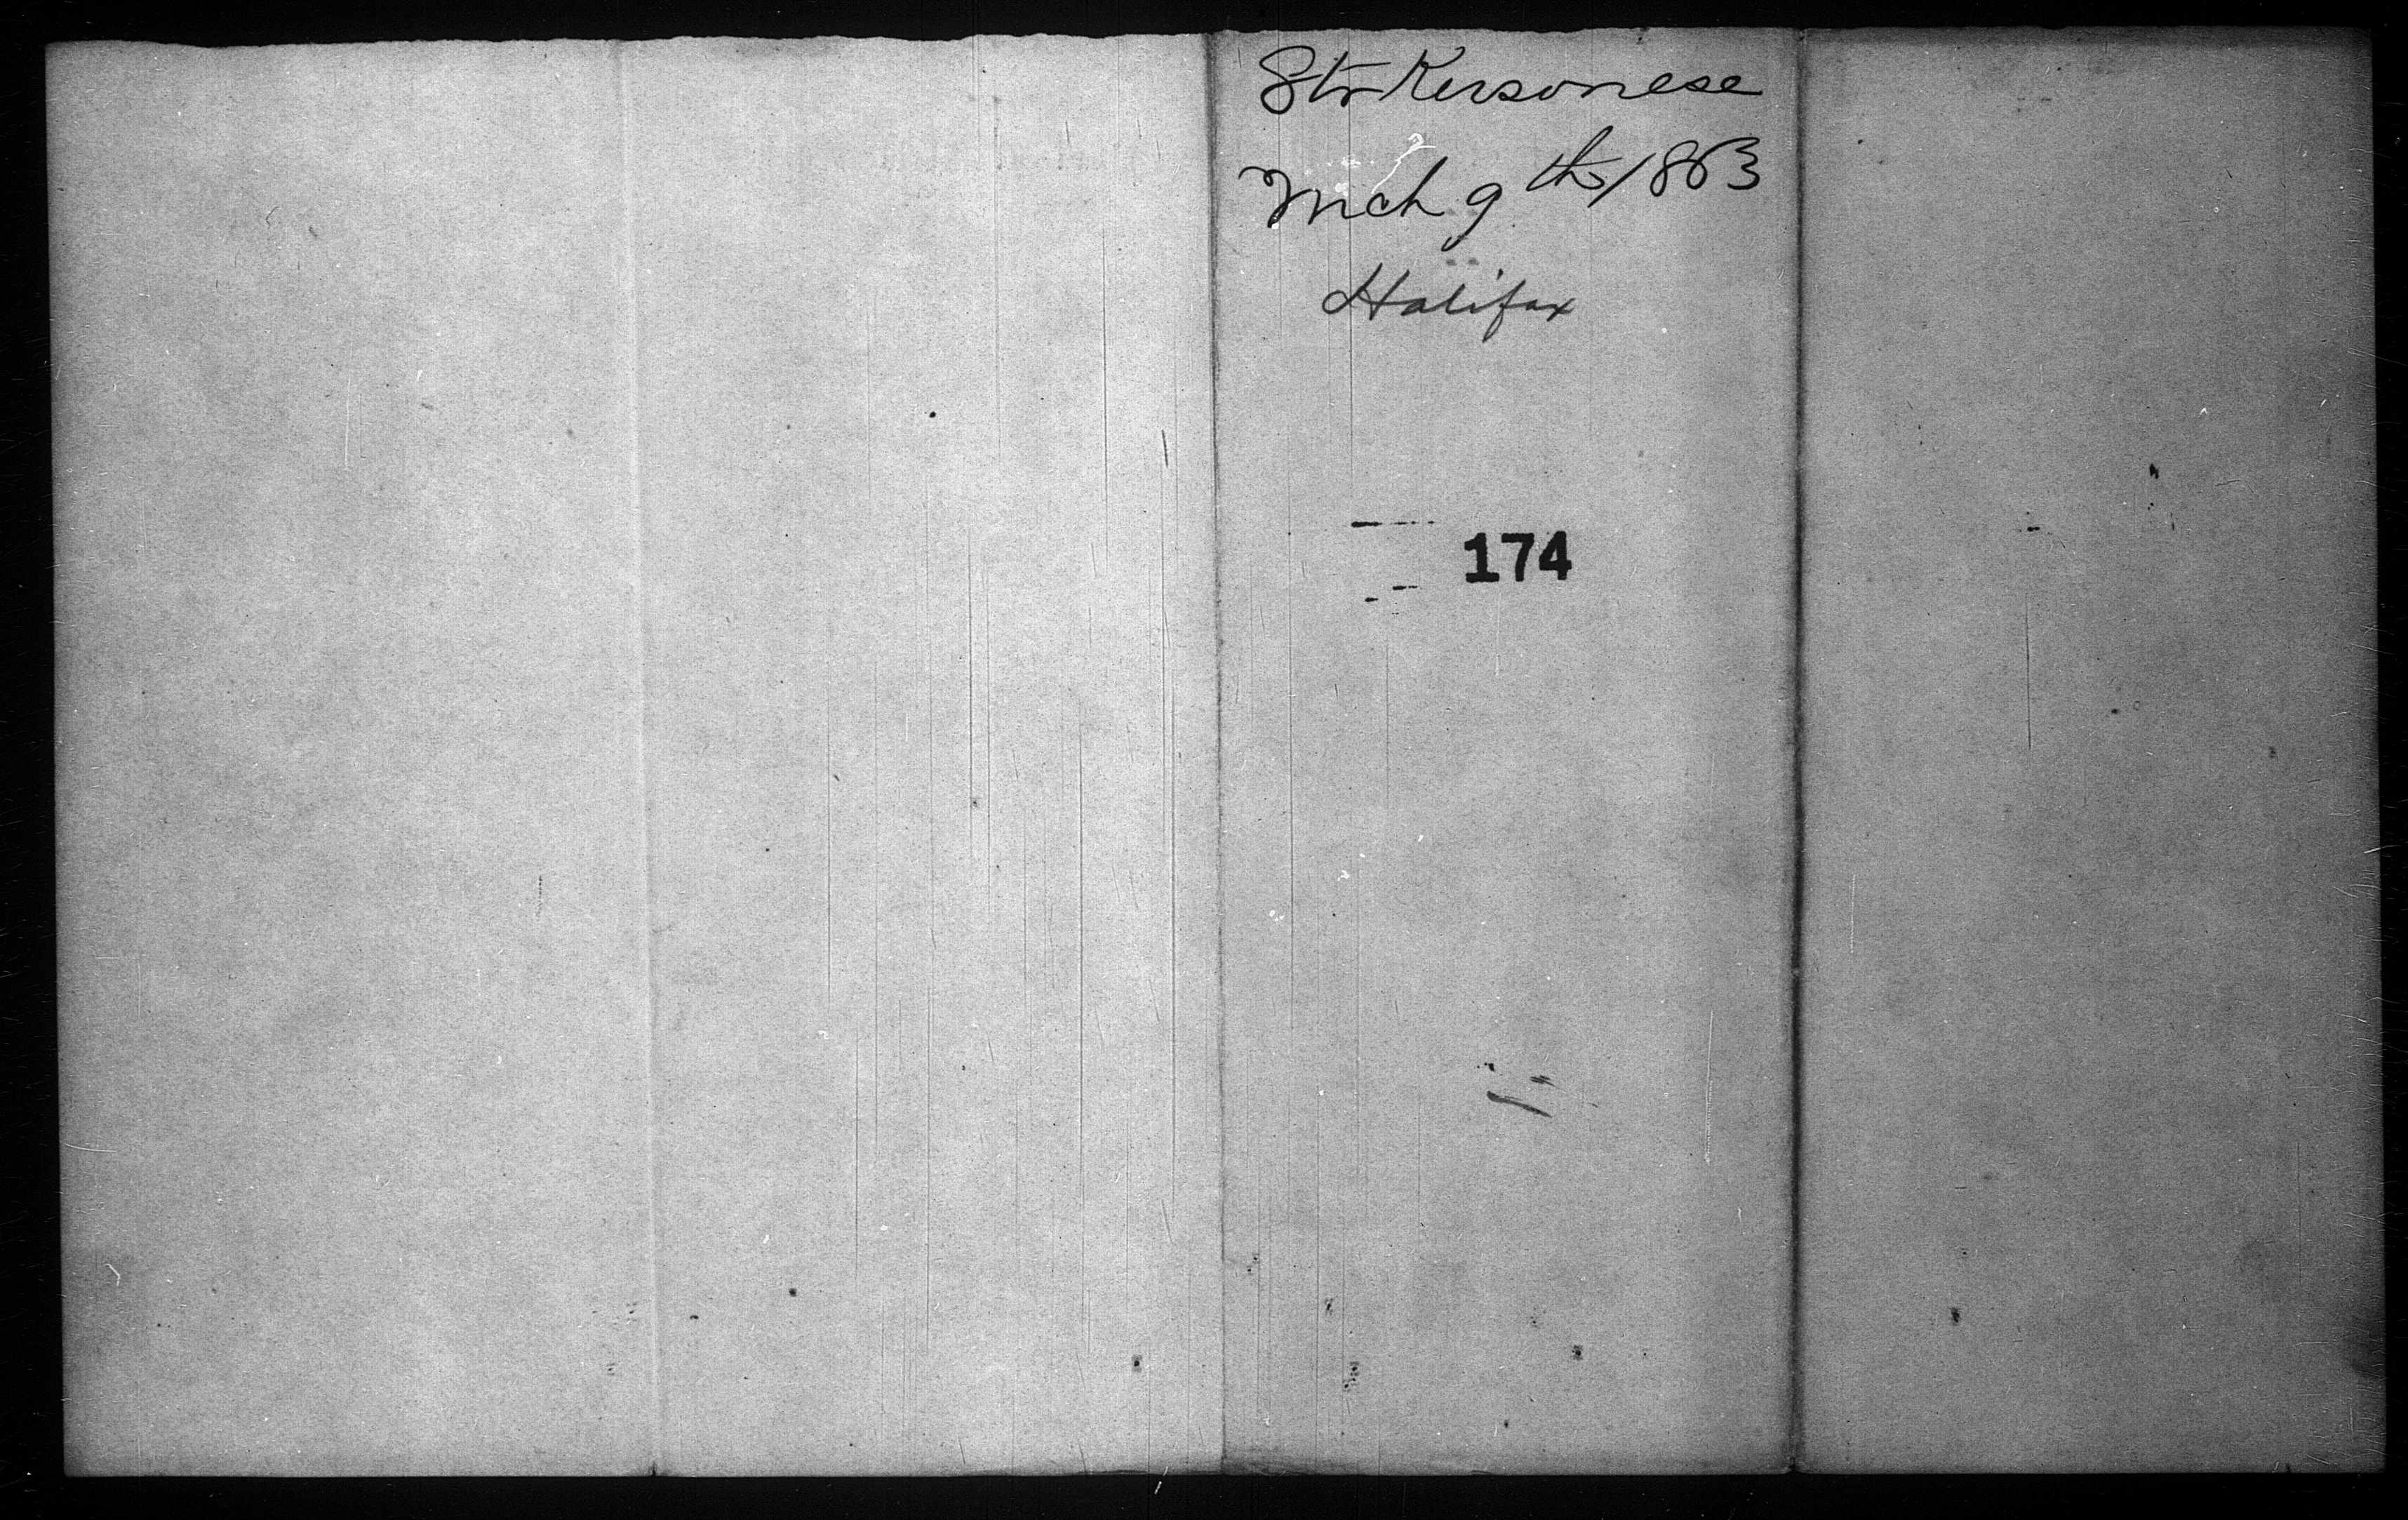 Str Kersonese
Mch 9th/1863
Halifax
174